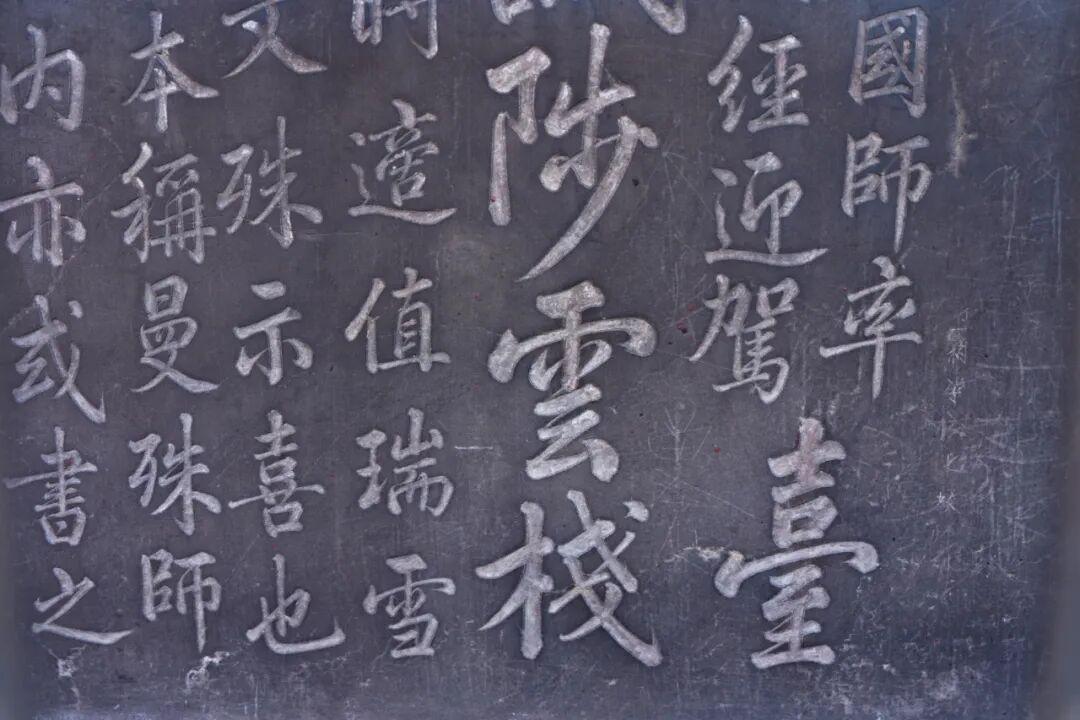 國師率
經迎駕
臺
陟雲棧
時適值瑞雪
文殊示喜也
本稱曼殊師
內亦或書之